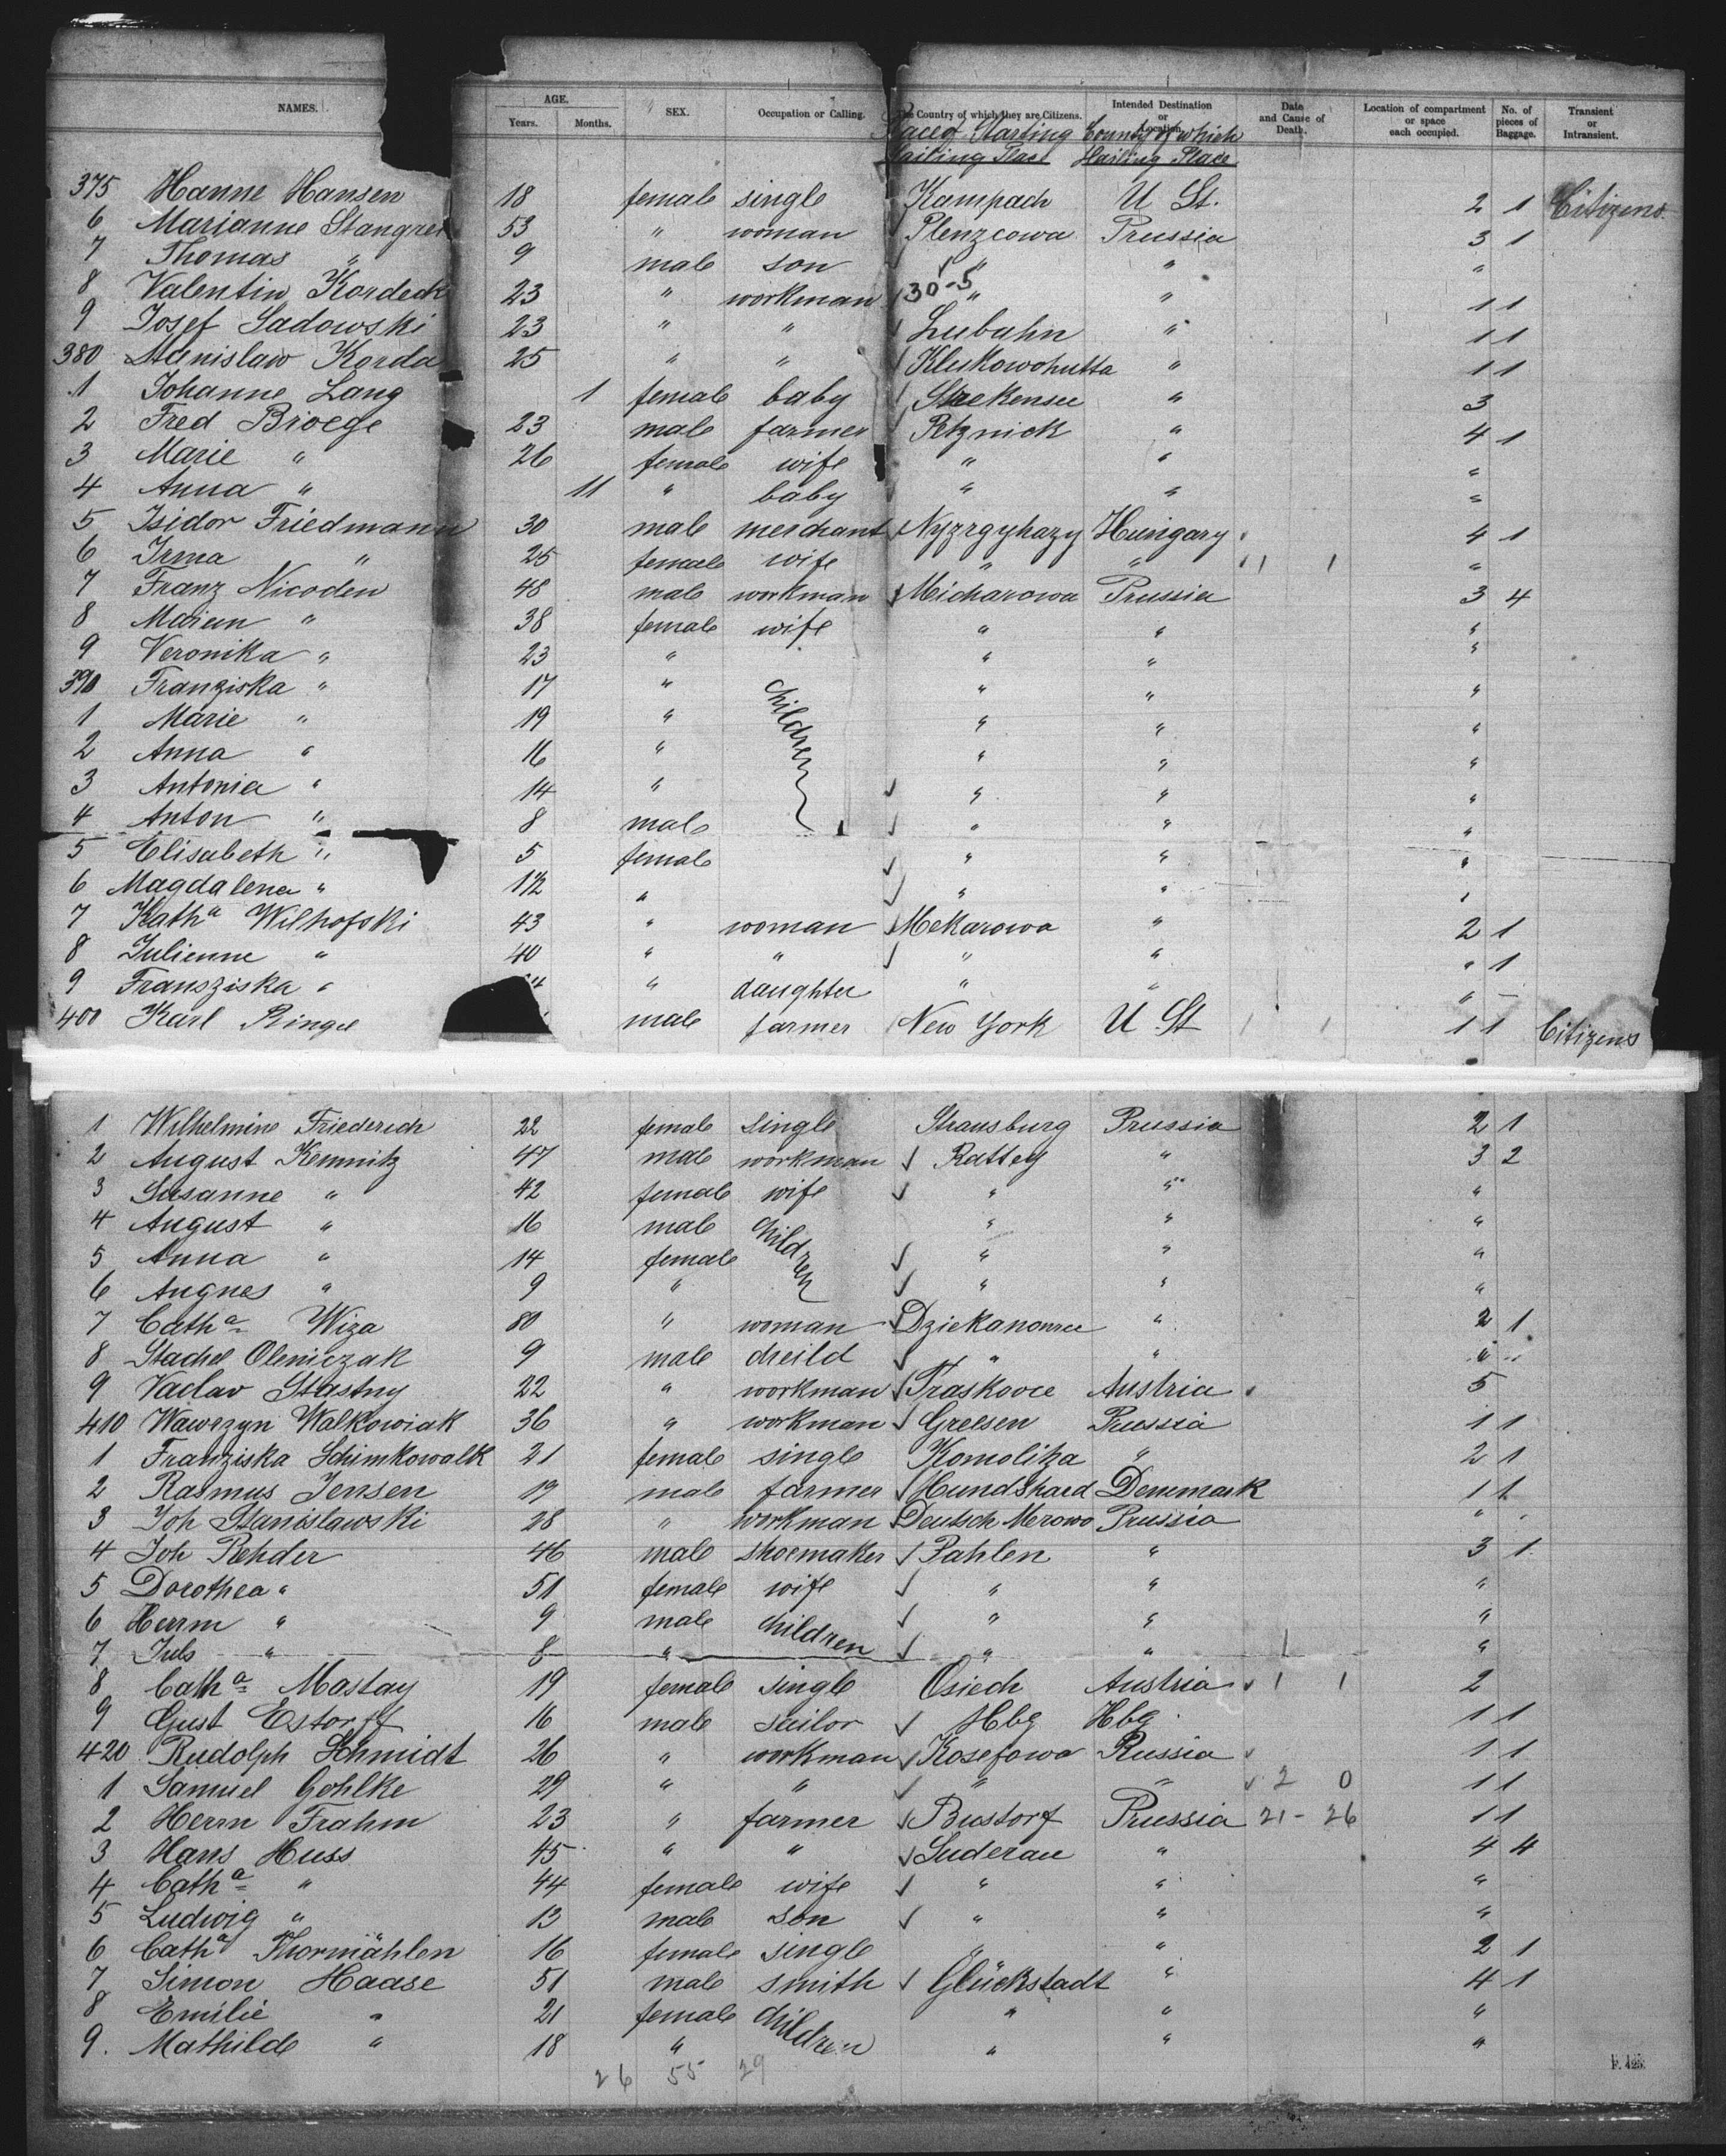 NAMES. AGE. Years. Months. SEX. Occupation or Calling. The Country of which they are Citizens. Intended Destination or Location. Date and Cause of Death. Location of compartment or space each occupied. No. of pieces of Baggage. Transient or Intransient.
Place of Starting Country of which
Hailing Place Hailing Place
375 Hanne Hansen 18 female single Kampach U St. 2 1 Citizens
6 Marianne Stangret 53 " woman Plenzcowa Prussia 3 1
7 Thomas " 9 male son " " "
8 Valentin Kordeck 23 " workman 30-5 " " 1 1
9 Josef Sadowski 23 " " Lubahn " 1 1
380 Stanislaw Korda 25 " " Klukowohutta " 1 1
1 Johanne Lang 1 female baby Starkensee " 3
2 Fred Broege 23 male farmer Petznick " 4 1
3 Marie " 26 female wife " " "
4 Anna " 11 " baby " " "
5 Isidor Friedmann 30 male merchant Nyzrgyhazy Hungary 4 1
6 Irma " 25 female wife " " 1 1 "
7 Franz Nicoden 48 male workman Micharowa Prussia 3 4
8 Mariun " 38 female wife " " "
9 Veronika " 23 " " " "
390 Franziska " 17 " children " " "
1 Marie " 19 " " " "
2 Anna " 16 " " " "
3 Antonia " 14 " " " "
4 Anton " 8 male " " "
5 Elisabeth " 5 female " " "
6 Magdalena " 1 1/2 " " " "
7 Kath a Wilhofski 43 " woman Mekarowo " 2 1
8 Julienne " 40 " " " " " 1
9 Fransziska " " daughter " " " –
400 Karl Ringel male farmer New York U St 1 1 1 1 Citizens
1 Wilhelmine Friederich 22 female single Strausburg Prussia 2 1
2 August Kemnitz 47 male workman Rattey " 3 2
3 Susanne " 42 female wife " " "
4 August " 16 male children " " "
5 Anna " 14 female " " "
6 Augnes " 9 " " " "
7 Cath a Wiza 80 " woman Dziekanowice " 2 1
8 Stachel Oleniczak 9 male cheild " " " "
9 Vaclav Stastny 22 " workman Traskovce Austria 5
410 Wawrzyn Walkowiak 36 " workman Greesen Prussia 1 1
1 Franziska Schimkowalk 21 female single Komolitza " 2 1
2 Rasmus Jensen 19 male farmer Hundshaed Denemark 1 1
3 Joh Stanislawski 28 " workman Deutsch Merowo Prussia " "
4 Joh Rehder 46 male shoemaker Pahlen " 3 1
5 Dorothea " 51 female wife " " "
6 Herrm " 9 male children " " "
7 Juls " 8 " " " "
8 Cath a Mastay 19 female single Osiech Austria 1 1 2
9 Gust Estorff 16 male sailor Hbg Hbg 1 1
420 Rudolph Schmidt 26 " workman Kosefowo Russia 1 1
1 Samuel Gohlke 29 " " " " 2 0 1 1
2 Herm Frahm 23 " farmer Bustorf Prussia 21 - 26 1 1
3 Hans Huss 45 " " Suderau " 4 4
4 Cath a " 44 female wife " " "
5 Ludwig " 13 male son " " "
6 Cath a Thormählen 16 female single " " 2 1
7 Simon Haase 51 male smith Glückstadt " 4 1
8 Emilie " 21 female children " " "
9. Mathilde " 18 " " " "
26 55 29